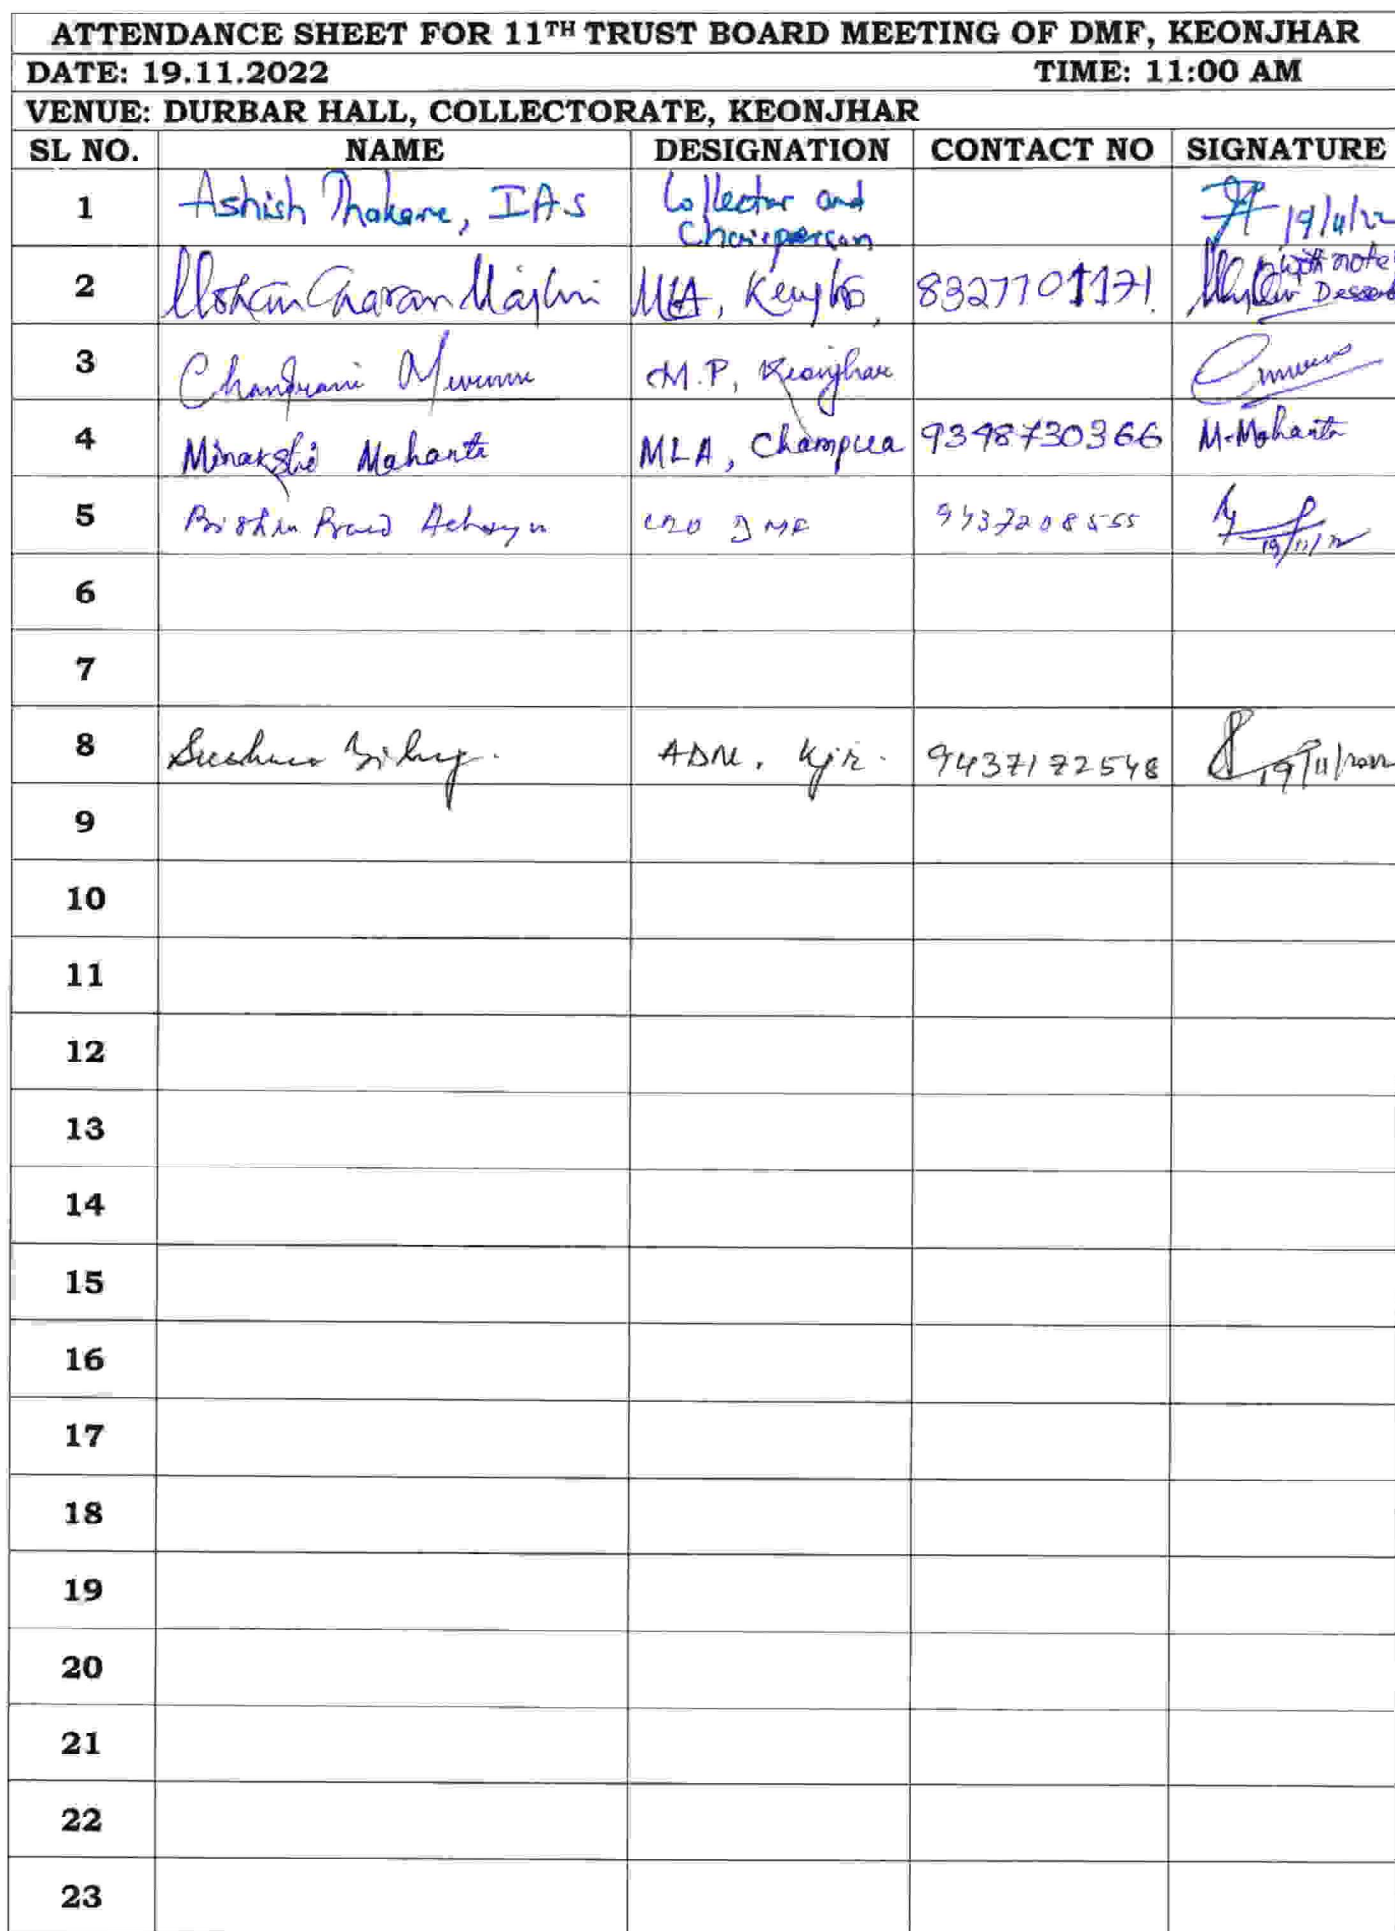 ATTENDANCE SHEET FOR 11TH TRUST BOARD MEETING OF DMF, KEONJHAR
DATE: 19.11.2022 TIME: 11:00 AM
VENUE: DURBAR HALL, COLLECTORATE, KEONJHAR
SL NO. NAME DESIGNATION CONTACT NO SIGNATURE
1 Ashish Thakare, IAS Collector and Chairperson 19/11/22
2 Mohan Charan Majhi MLA, 8327701171. with note
3 Chandrani Murmu M.P, Keonjhar
4 Minakshi Mahanta MLA, Champua 9348730366 M. Mahanta
5 DMF 9437208555 19/11/22
6
7
8 ADM, Kjr. 9437172548 19/11/2022
9
10
11
12
13
14
15
16
17
18
19
20
21
22
23